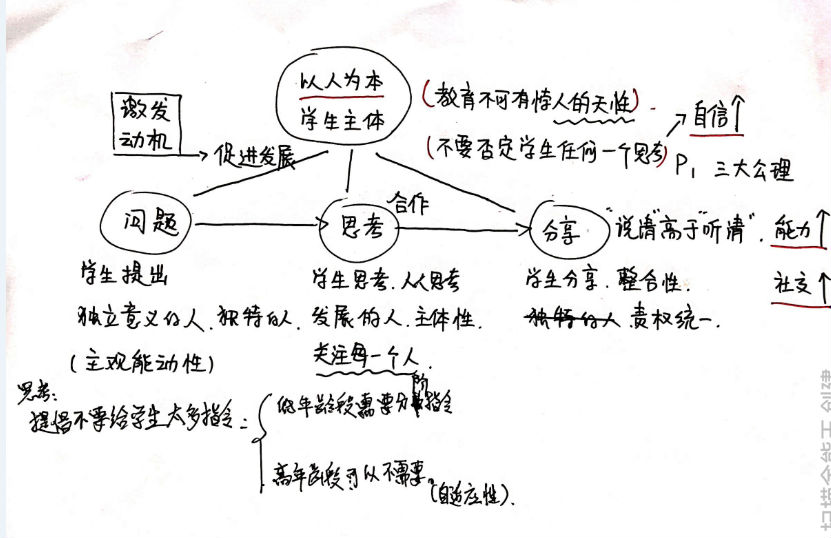 以人为本
学生主体
(教育不可有悖人的天性).
(不要否定学生任何一个思考)
自信↑
P₁ 三大公理
激发
动机
促进发展
问题
思考
合作
分享
"说清"高于"听清".
能力↑
社交↑
学生提出
独立意义的人.独特的人.
(主观能动性)
学生思考.人人思考
发展的人.主体性.
关注每一个人.
学生分享.整合性.
独特的人 责权统一.
思考:
提倡不要给学生太多指令:
低年龄段需要分阶指令
高年龄段可以不需要。(自适应性).
扫描全能王 创建